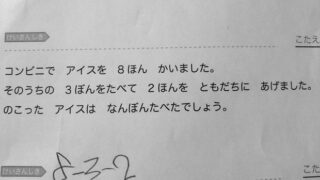 けいさんしき こたえ
コンビニで アイスを 8ほん かいました。
そのうちの 3ぼんをたべて 2ほんを ともだちに あげました。
のこった アイスは なんぼんたべたでしょう。
けいさんしき 8-3-2 こた